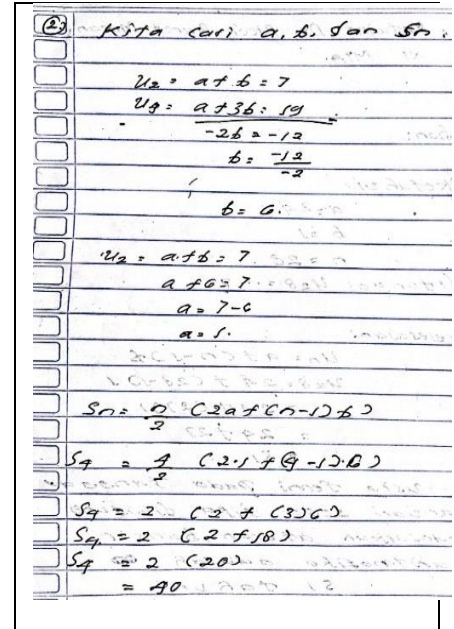 2) Kita cari a, b, dan Sn.
U2 = a + b = 7
U4 = a + 3b = 19
-
-2b = -12
b = -12/-2
b = 6.
U2 = a + b = 7
a + 6 = 7
a = 7 - 6
a = 1.
Sn = n/2 (2a + (n-1) b)
S4 = 4/2 (2.1 + (4-1).6)
S4 = 2 (2 + (3)6)
S4 = 2 (2 + 18)
S4 = 2 (20)
= 40